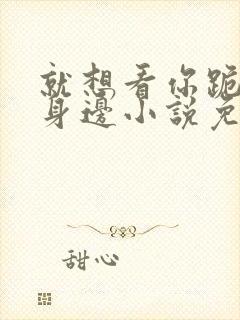 就想看你跪
身邊小說免
甜心